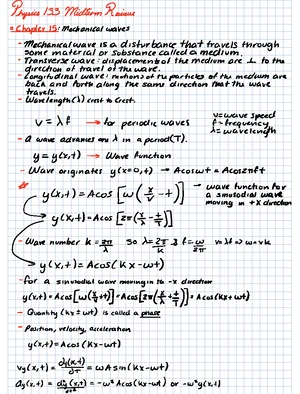 Physics 133 Midterm Review
Chapter 15: Mechanical waves
- Mechanical wave is a disturbance that travels through
some material or substance called a medium.
- Transverse wave: displacement of the medium are ⊥ to the
direction of travel of the wave.
- Longitudinal wave: motions of the particles of the medium are
back and forth along the same direction that the wave
travels.
- Wavelength (λ) crest to crest.
v = λf → for periodic waves
v = wave speed
f = frequency
λ = wavelength
- A wave advances one λ in a period (T).
y = y(x,t) → Wave function
- Wave originates y(x=0,t) → Acosωt = Acos2πft
y(x,t) = Acos[ω(x/v - t)] → wave function for
a sinusoidal wave
moving in +x direction
y(x,t) = Acos[2π(x/λ - t/T)]
- Wave number k = 2π/λ so λ = 2π/k & f = ω/2π v = λf ⇒ ω = vk
y(x,t) = Acos(kx - ωt)
- for a sinusoidal wave moving in the -x direction
y(x,t) = Acos[ω(x/v + t)] = Acos[2π(x/λ + t/T)] = Acos(kx + ωt)
- Quantity (kx ± ωt) is called a phase
- Position, velocity, acceleration
y(x,t) = Acos(kx - ωt)
vy(x,t) = ∂y(x,t)/∂t = ωA sin(kx - ωt)
ay(x,t) = ∂²y(x,t)/∂t² = -ω²Acos(kx - ωt) or -ω²y(x,t)